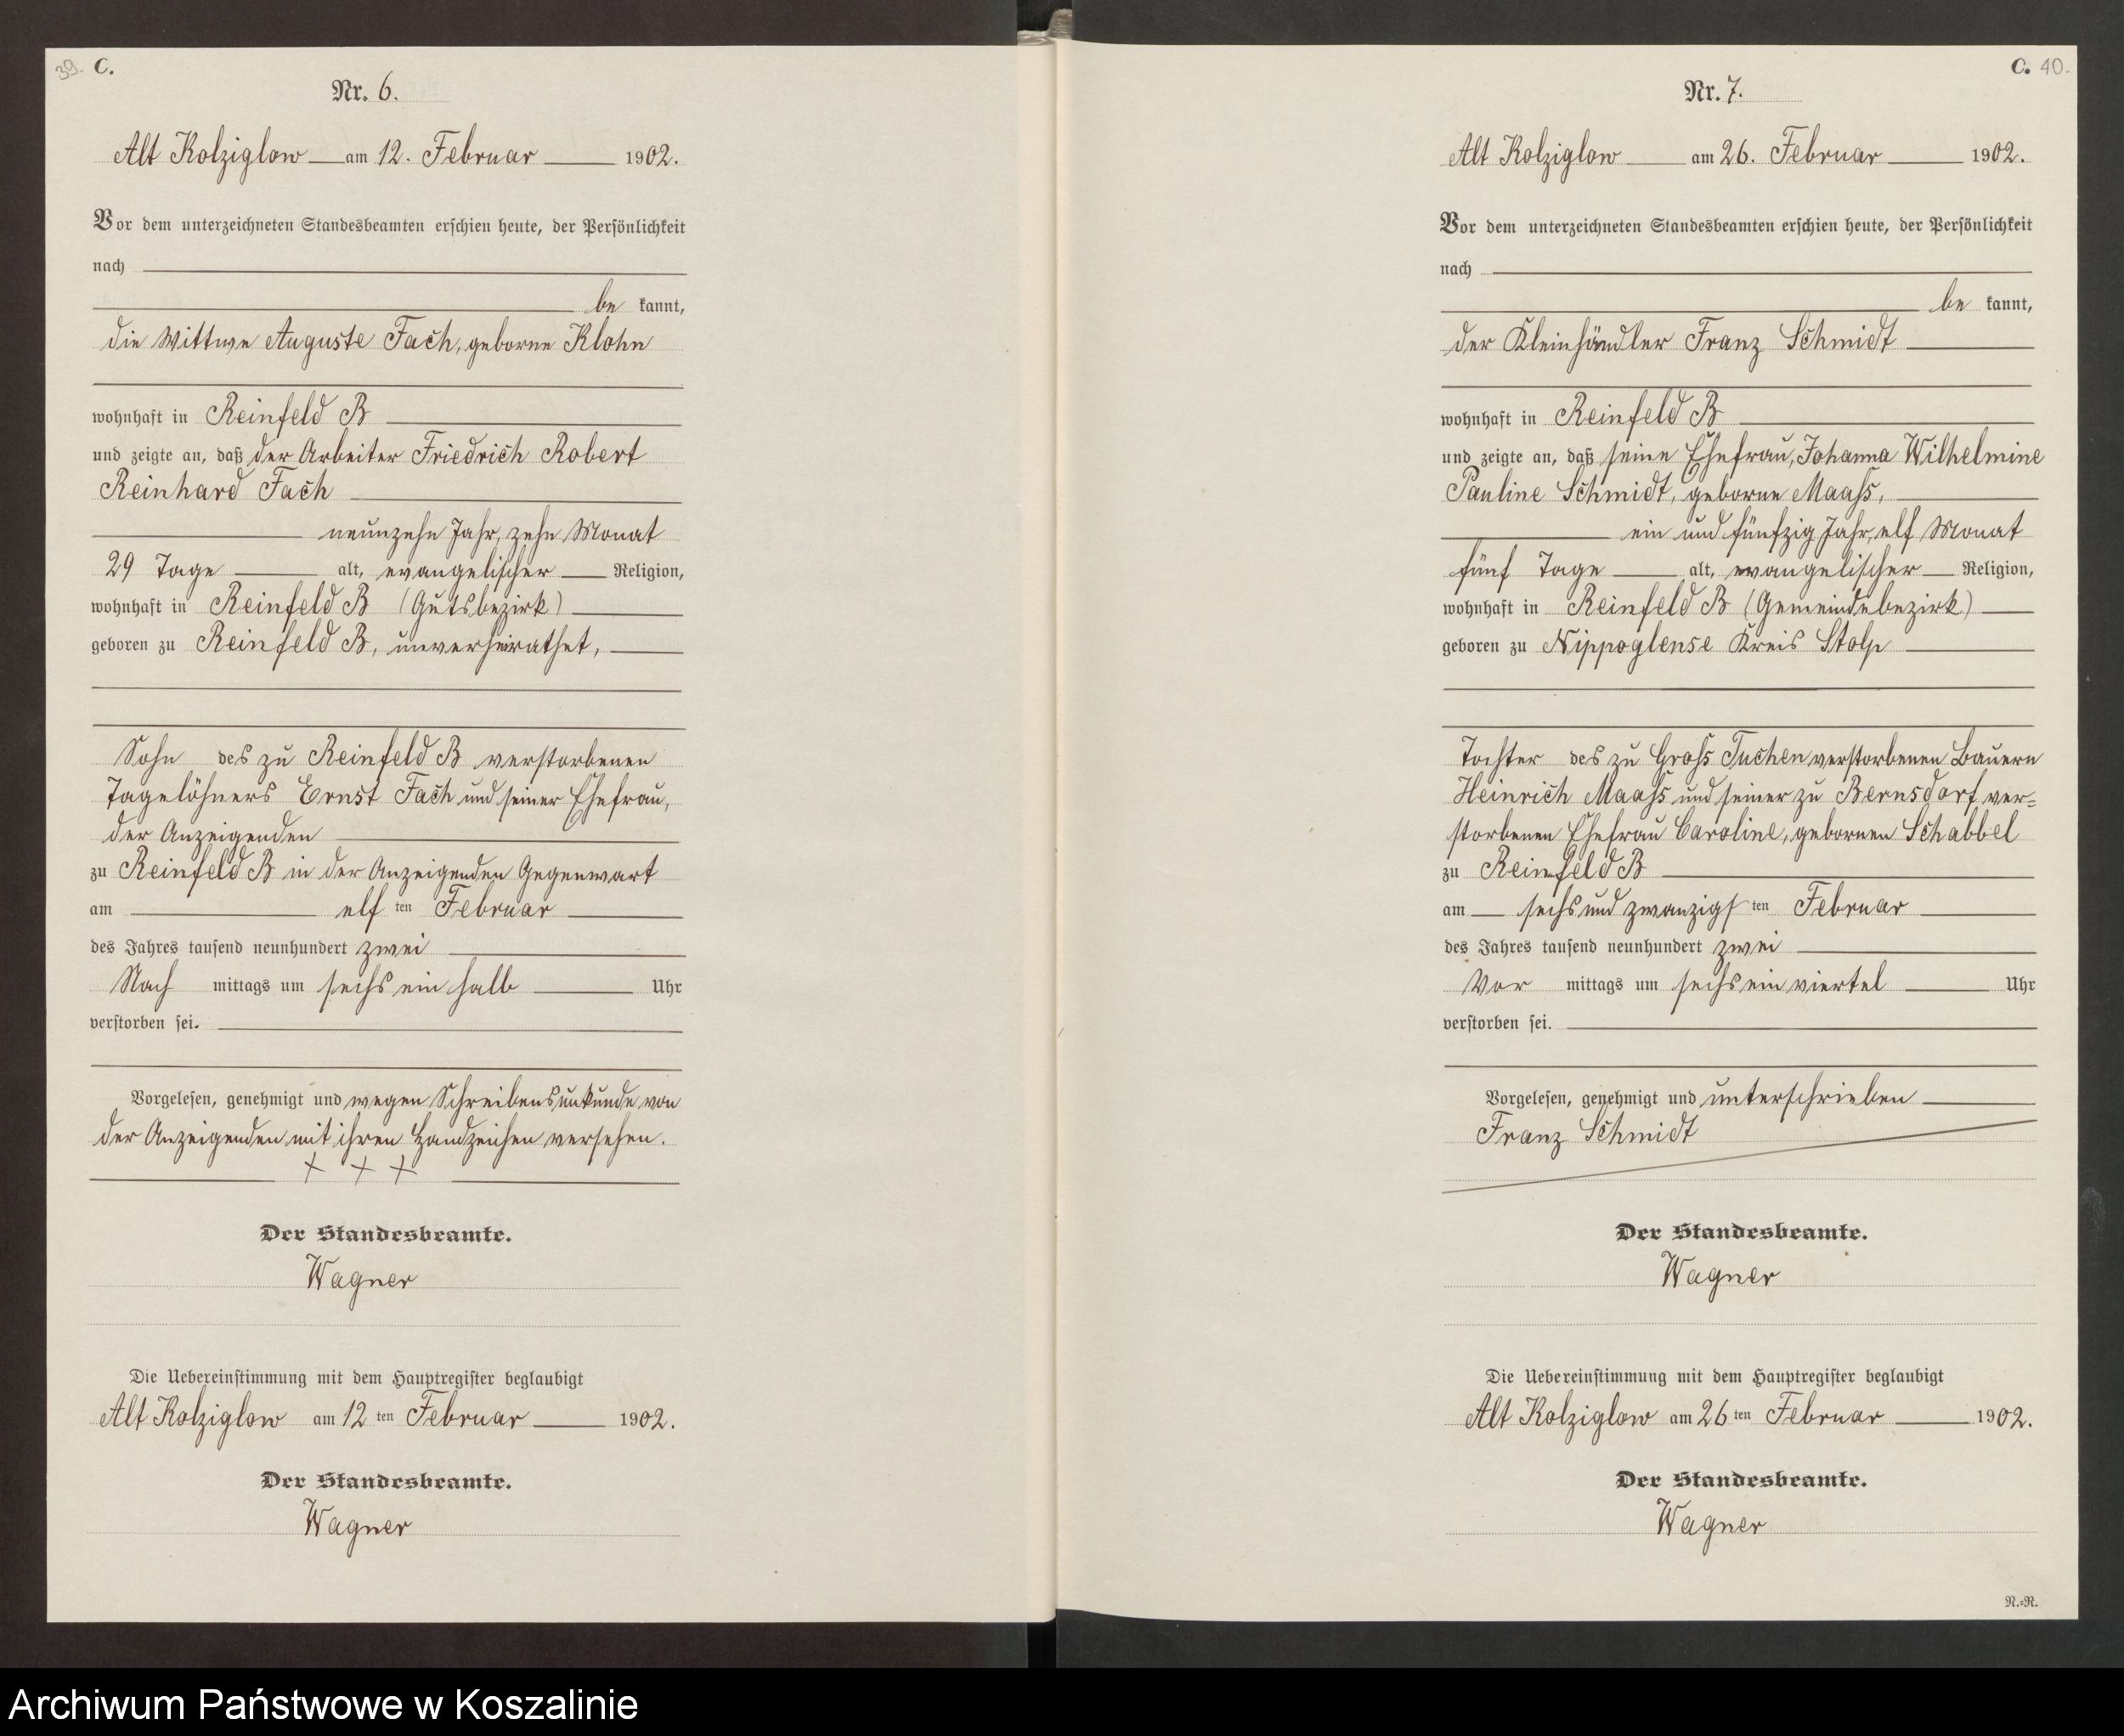 39. C.
Nr. 6.
Alt Kolziglow am 12. Februar 1902.
Vor dem unterzeichneten Standesbeamten erschien heute, der Persönlichkeit
nach
be kannt,
die Wittwe Auguste Fach, geborne Klohn
wohnhaft in Reinfeld B
und zeigte an, daß der Arbeiter Friedrich Robert
Reinhard Fach
neunzehn Jahr, zehn Monat
29 Tage alt, evangelischer Religion,
wohnhaft in Reinfeld B (Gutsbezirk)
geboren zu Reinfeld B, unverheirathet,
Sohn des zu Reinfeld B verstorbenen
Tagelöhners Ernst Fach und seiner Ehefrau,
der Anzeigenden
zu Reinfeld B in der Anzeigenden Gegenwart
am elf ten Februar
des Jahres tausend neunhundert zwei
Nach mittags um sechs ein halb Uhr
verstorben sei.
Vorgelesen, genehmigt und wegen Schreibensunkunde von
der Anzeigenden mit ihren Handzeichen versehen.
+ + +
Der Standesbeamte.
Wagner
Die Uebereinstimmung mit dem Hauptregister beglaubigt
Alt Kolziglow am 12 ten Februar 1902.
Der Standesbeamte.
Wagner
C. 40.
Nr. 7.
Alt Kolziglow am 26. Februar 1902.
Vor dem unterzeichneten Standesbeamten erschien heute, der Persönlichkeit
nach
be kannt,
der Kleinhändler Franz Schmidt
wohnhaft in Reinfeld B
und zeigte an, daß seine Ehefrau, Johanna Wilhelmine
Pauline Schmidt, geborne Maaß,
ein und fünfzig Jahr, elf Monat
fünf Tage alt, evangelischer Religion,
wohnhaft in Reinfeld B (Gemeindebezirk)
geboren zu Nippoglense Kreis Stolp
Tochter des zu Groß Tuchen verstorbenen Bauern
Heinrich Maaß und seiner zu Bernsdorf ver=
storbenen Ehefrau Caroline, gebornen Schabbel
zu Reinfeld B
am sechs und zwanzigs ten Februar
des Jahres tausend neunhundert zwei
Vor mittags um sechs ein viertel Uhr
verstorben sei.
Vorgelesen, genehmigt und unterschrieben
Franz Schmidt
Der Standesbeamte.
Wagner
Die Uebereinstimmung mit dem Hauptregister beglaubigt
Alt Kolziglow am 26 ten Februar 1902.
Der Standesbeamte.
Wagner
N.=N.
Archiwum Państwowe w Koszalinie